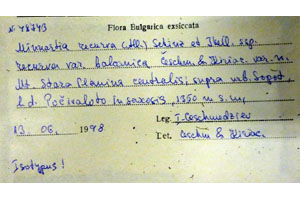 № 48343
Flora Bulgarica exsiccata
Minuartia recurva (All.) Schinz et Thell. ssp.
recurva var. balcanica Česchm. & var. n.
Mt. Stara Planina centralis; supra urb. Sopot,
l. d. Počivaloto in saxosis, 1350 m s. m.
Leg. I. Ceschmedžiev
13. 06. 1998
Det. Česchm &
Isotypus!